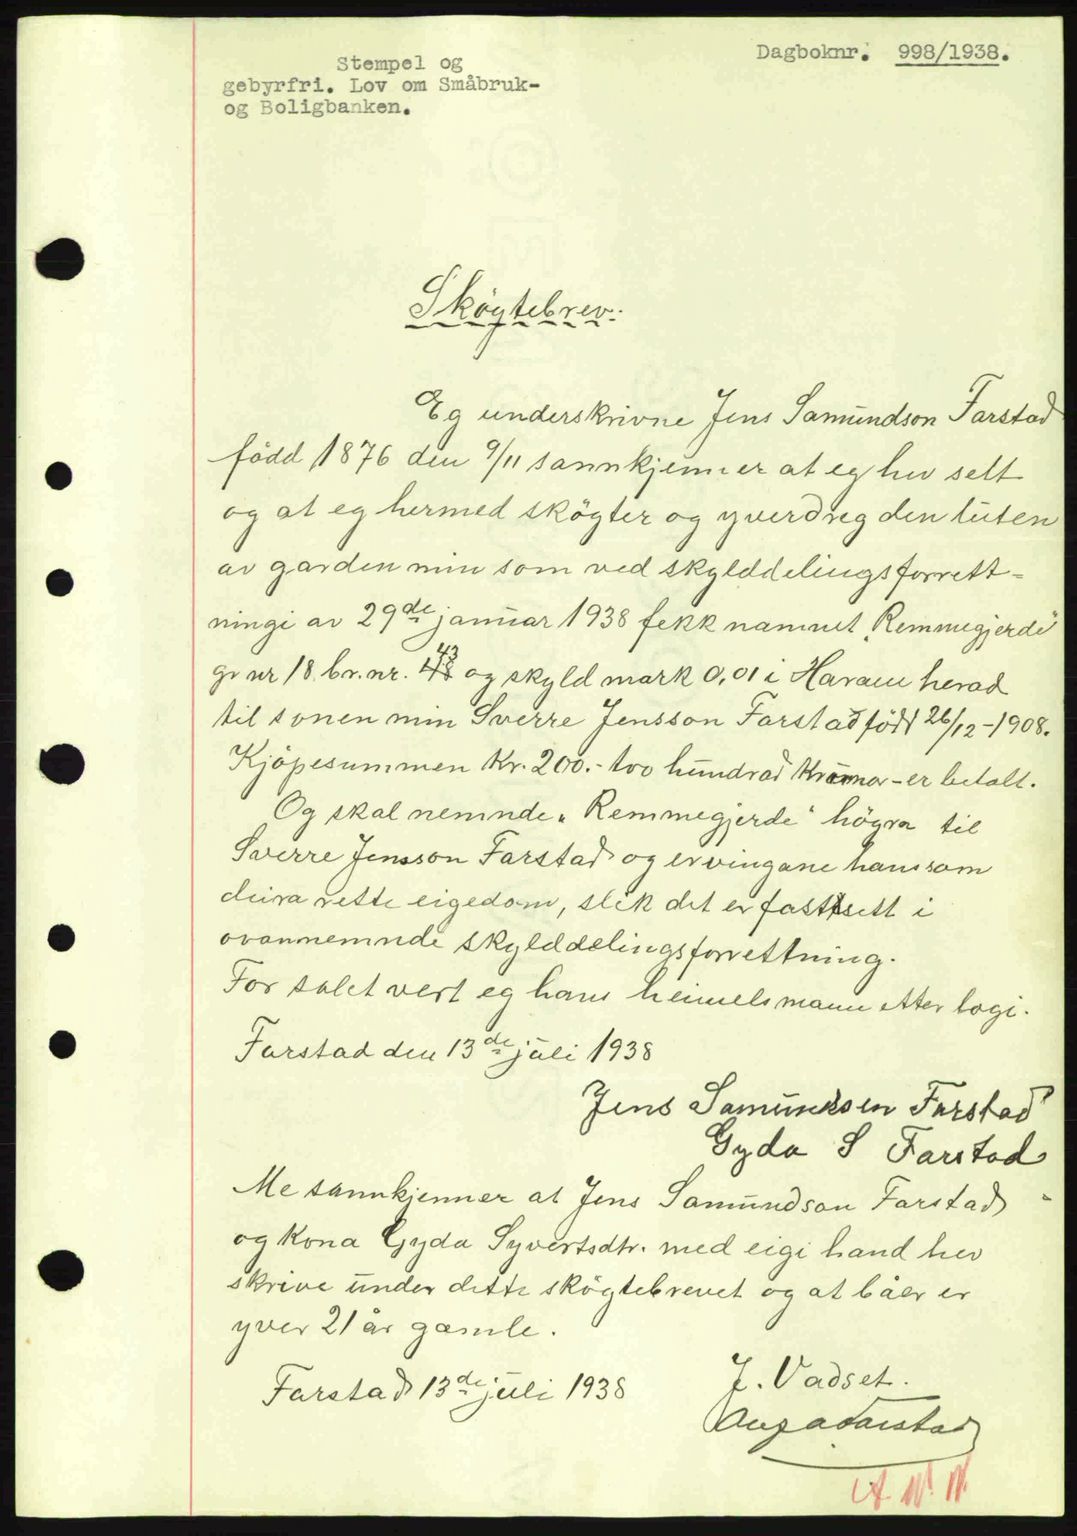 Stempel og
gebyrfri. Lov om Småbruk-
og Boligbanken.
Dagboknr. 998/1938.
Skøgtebrev.
Eg underskrivne Jens Samundson Farstad
född 1876 den 9/11 sannkjenner at eg hev selt
og at eg hermed skögter og yverdreg den luten
av garden min som ved skylddelingsforrett-
ningi av 29de januar 1938 fekk namnet "Remmegjerde"
gr nr 18 br. nr. 43 og skyld mark 0,01 i Haram herad
til sonen min Sverre Jensson Farstad född 26/12-1908.
Kjöpesummen Kr. 200.- tvo hundrad Krunor - er betalt.
Og skal nemnde "Remmegjerde" högra til
Sverre Jensson Farstad og ervingane hans som
deira rette eigedom, slik det er fastsett i
ovannemnde skylddelingsforrettning.
For salet vert eg hans heimelsmann etter logi.
Farstad den 13de juli 1938
Jens Samundsen Farstad
Gyda S Farstad
Me sannkjenner at Jens Samundson Farstad
og Kona Gyda Syvertsdtr. med eigi hand hev
skrive under dette skögtebrevet og at båer er
yver 21 år gamle.
Farstad 13de juli 1938
J. Vadset.
Farstad